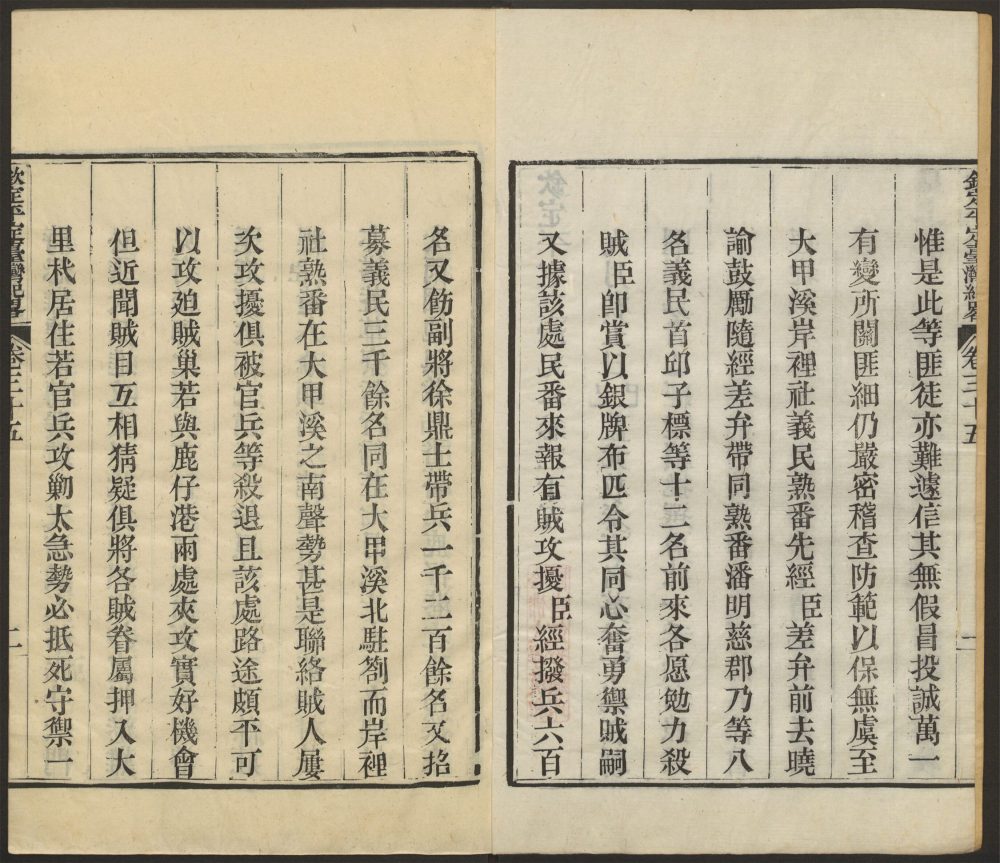 欽定平定臺灣紀畧 卷三十五 二
惟是此等匪徒亦難遽信其無假冒投誠萬一
有變所關匪細仍嚴密稽查防範以保無虞至
大甲溪岸裡社義民熟番先經臣差弁前去曉
諭鼓勵隨經差弁帶同熟番潘明慈郡乃等八
名義民首邱子標等十二名前來各愿勉力殺
賊臣卽賞以銀牌布匹令其同心奮勇禦賊嗣
又據該處民番來報有賊攻擾臣經撥兵六百
名又飭副將徐鼎士帶兵一千二百餘名又招
募義民三千餘名同在大甲溪北駐劄而岸裡
社熟番在大甲溪之南聲勢甚是聯絡賊人屢
次攻擾俱被官兵等殺退且該處路途頗平可
以攻廹賊巢若與鹿仔港兩處夾攻實好機會
但近聞賊目互相猜疑俱將各賊眷屬押入大
里杙居住若官兵攻勦太急勢必抵死守禦一
欽定平定臺灣紀畧 卷三十五 二